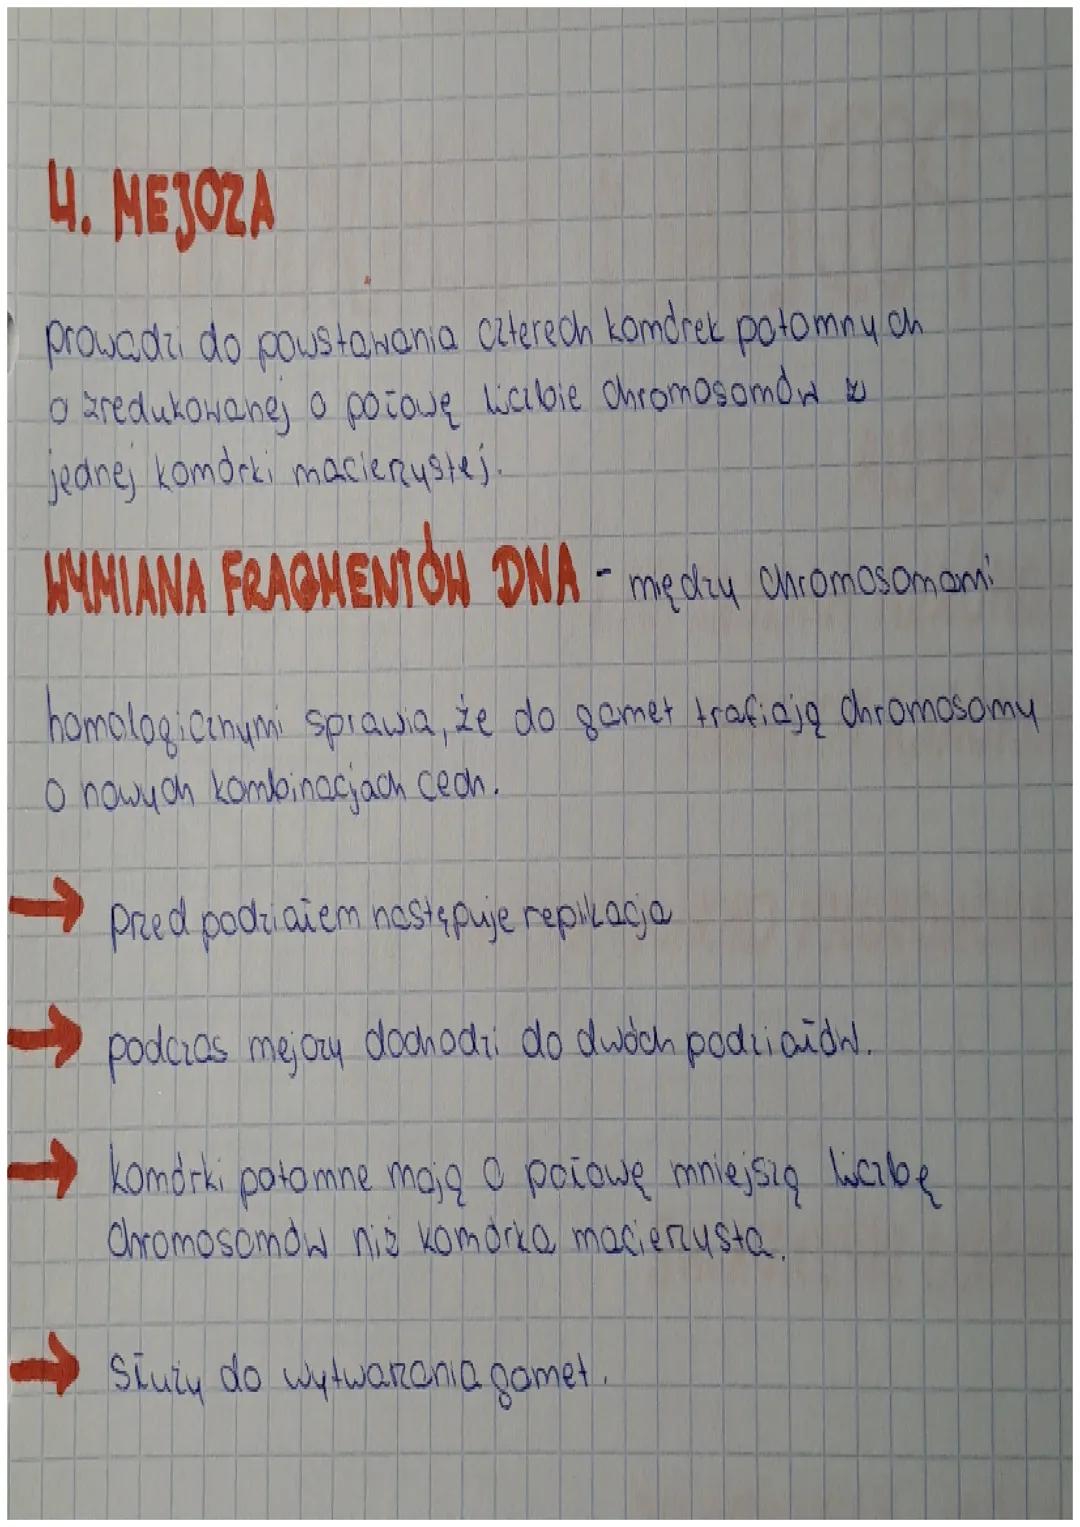 4. MEJOZA
prowadzi do powstawania czterech komórek potomnych
o zredukowanej o połowę liczbie chromosomów z
jednej komórki macierzystej.
WYMIANA FRAGMENTÓW DNA - między chromosomami
homologicznymi sprawia, że do gamet trafiają chromosomy
o nowych kombinacjach cech.
→ przed podziałem następuje replikacja
→ podczas mejozy dochodzi do dwóch podziałów.
→ komórki potomne mają o połowę mniejszą liczbę
chromosomów niż komórka macierzysta.
→ Służy do wytwarzania gamet.